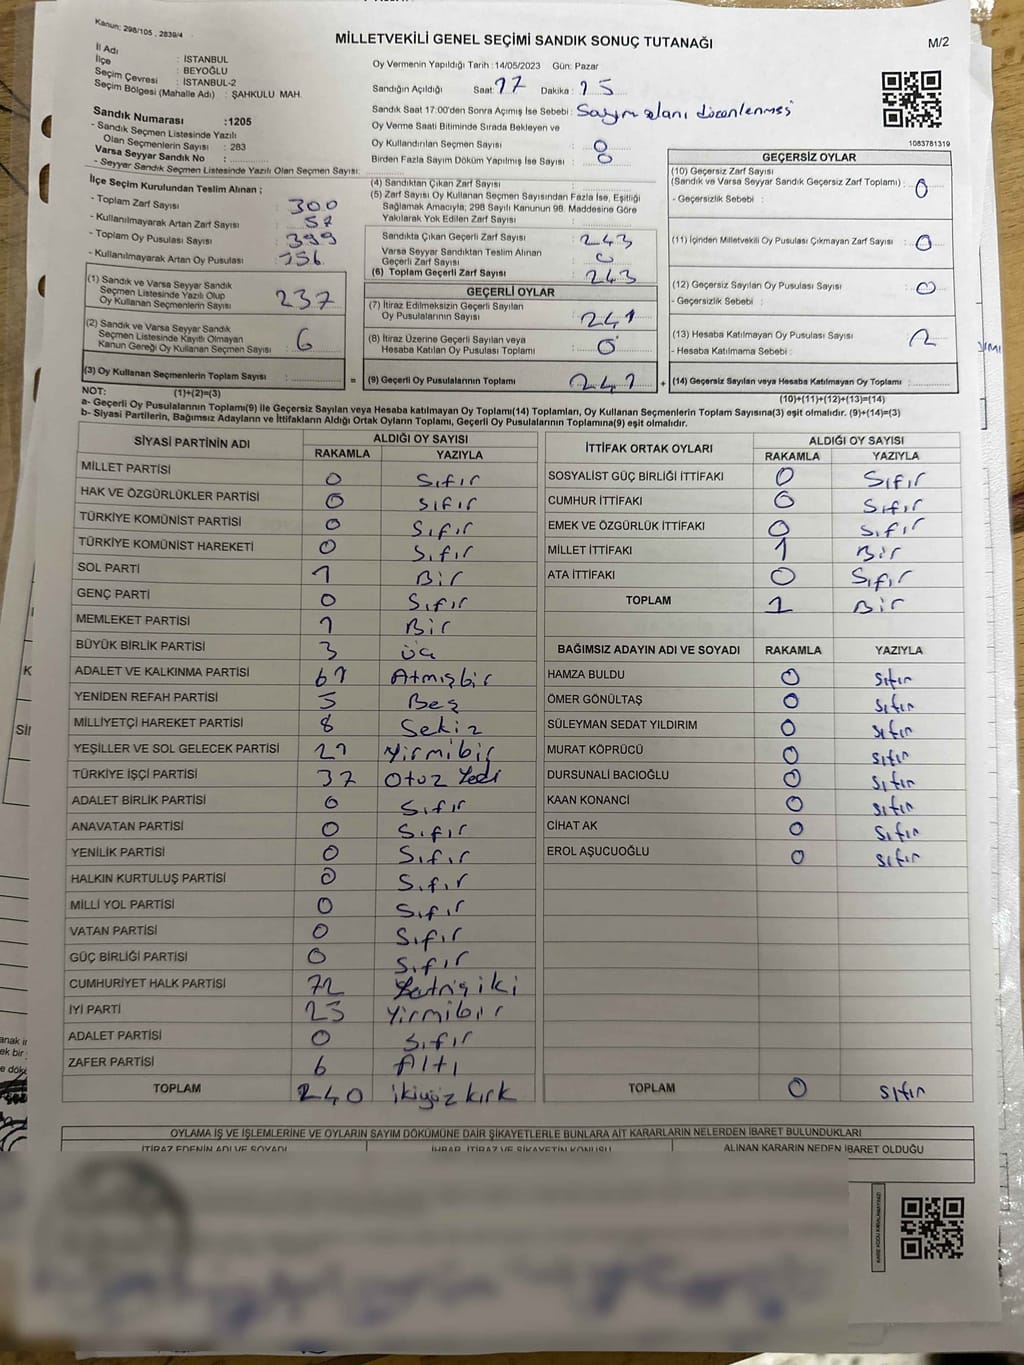 Kanun: 298/105 , 2839/4
MİLLETVEKİLİ GENEL SEÇİMİ SANDIK SONUÇ TUTANAĞI
M/2
İl Adı : İSTANBUL
İlçe : BEYOĞLU
Seçim Çevresi : İSTANBUL-2
Seçim Bölgesi (Mahalle Adı) : ŞAHKULU MAH.
Sandık Numarası :1205
- Sandık Seçmen Listesinde Yazılı
Olan Seçmenlerin Sayısı : 283
Varsa Seyyar Sandık No :
- Seyyar Sandık Seçmen Listesinde Yazılı Olan Seçmen Sayısı:
Oy Vermenin Yapıldığı Tarih :14/05/2023 Gün: Pazar
Sandığın Açıldığı Saat: 17 Dakika : 15
Sandık Saat 17:00'den Sonra Açımış İse Sebebi : Sayım alanı düzenlenmesi
Oy Verme Saati Bitiminde Sırada Bekleyen ve
Oy Kullandırılan Seçmen Sayısı : 0
Birden Fazla Sayım Döküm Yapılmış İse Sayısı : 0
1083781319
İlçe Seçim Kurulundan Teslim Alınan ;
- Toplam Zarf Sayısı : 300
- Kullanılmayarak Artan Zarf Sayısı : 57
- Toplam Oy Pusulası Sayısı : 399
- Kullanılmayarak Artan Oy Pusulası : 156
(1) Sandık ve Varsa Seyyar Sandık
Seçmen Listesinde Yazılı Olup
Oy Kullanan Seçmenlerin Sayısı : 237
(2) Sandık ve Varsa Seyyar Sandık
Seçmen Listesinde Kayıtlı Olmayan
Kanun Gereği Oy Kullanan Seçmen Sayısı : 6
(3) Oy Kullanan Seçmenlerin Toplam Sayısı :
(4) Sandıktan Çıkan Zarf Sayısı :
(5) Zarf Sayısı Oy Kullanan Seçmen Sayısından Fazla İse, Eşitliği
Sağlamak Amacıyla; 298 Sayılı Kanunun 98. Maddesine Göre
Yakılarak Yok Edilen Zarf Sayısı :
Sandıkta Çıkan Geçerli Zarf Sayısı : 243
Varsa Seyyar Sandıktan Teslim Alınan
Geçerli Zarf Sayısı : 0
(6) Toplam Geçerli Zarf Sayısı : 243
GEÇERLİ OYLAR
(7) İtiraz Edilmeksizin Geçerli Sayılan
Oy Pusulalarının Sayısı : 241
(8) İtiraz Üzerine Geçerli Sayılan veya
Hesaba Katılan Oy Pusulası Toplamı : 0
= (9) Geçerli Oy Pusulalarının Toplamı : 241
GEÇERSİZ OYLAR
(10) Geçersiz Zarf Sayısı
(Sandık ve Varsa Seyyar Sandık Geçersiz Zarf Toplamı) : 0
- Geçersizlik Sebebi :
(11) İçinden Milletvekili Oy Pusulası Çıkmayan Zarf Sayısı : 0
(12) Geçersiz Sayılan Oy Pusulası Sayısı : 0
- Geçersizlik Sebebi :
(13) Hesaba Katılmayan Oy Pusulası Sayısı : 2
- Hesaba Katılmama Sebebi :
+ (14) Geçersiz Sayılan veya Hesaba Katılmayan Oy Toplamı :
NOT: (1)+(2)=(3)
(10)+(11)+(12)+(13)=(14)
a- Geçerli Oy Pusulalarının Toplamı(9) ile Geçersiz Sayılan veya Hesaba katılmayan Oy Toplamı(14) Toplamları, Oy Kullanan Seçmenlerin Toplam Sayısına(3) eşit olmalıdır. (9)+(14)=(3)
b- Siyasi Partilerin, Bağımsız Adayların ve İttifakların Aldığı Ortak Oyların Toplamı, Geçerli Oy Pusulalarının Toplamına(9) eşit olmalıdır.
SİYASİ PARTİNİN ADI ALDIĞI OY SAYISI
RAKAMLA YAZIYLA
MİLLET PARTİSİ 0 Sıfır
HAK VE ÖZGÜRLÜKLER PARTİSİ 0 Sıfır
TÜRKİYE KOMÜNİST PARTİSİ 0 Sıfır
TÜRKİYE KOMÜNİST HAREKETİ 0 Sıfır
SOL PARTİ 1 Bir
GENÇ PARTİ 0 Sıfır
MEMLEKET PARTİSİ 1 Bir
BÜYÜK BİRLİK PARTİSİ 3 üç
ADALET VE KALKINMA PARTİSİ 61 Atmışbir
YENİDEN REFAH PARTİSİ 5 Beş
MİLLİYETÇİ HAREKET PARTİSİ 8 Sekiz
YEŞİLLER VE SOL GELECEK PARTİSİ 21 Yirmibir
TÜRKİYE İŞÇİ PARTİSİ 37 Otuz Yedi
ADALET BİRLİK PARTİSİ 0 Sıfır
ANAVATAN PARTİSİ 0 Sıfır
YENİLİK PARTİSİ 0 Sıfır
HALKIN KURTULUŞ PARTİSİ 0 Sıfır
MİLLİ YOL PARTİSİ 0 Sıfır
VATAN PARTİSİ 0 Sıfır
GÜÇ BİRLİĞİ PARTİSİ 0 Sıfır
CUMHURİYET HALK PARTİSİ 72
İYİ PARTİ 25 Yirmibir
ADALET PARTİSİ 0 Sıfır
ZAFER PARTİSİ 6 Altı
TOPLAM 240 ikiyüz kırk
İTTİFAK ORTAK OYLARI ALDIĞI OY SAYISI
RAKAMLA YAZIYLA
SOSYALİST GÜÇ BİRLİĞİ İTTİFAKI 0 Sıfır
CUMHUR İTTİFAKI 0 Sıfır
EMEK VE ÖZGÜRLÜK İTTİFAKI 0 Sıfır
MİLLET İTTİFAKI 1 Bir
ATA İTTİFAKI 0 Sıfır
TOPLAM 1 Bir
BAĞIMSIZ ADAYIN ADI VE SOYADI RAKAMLA YAZIYLA
HAMZA BULDU 0 Sıfır
ÖMER GÖNÜLTAŞ 0 Sıfır
SÜLEYMAN SEDAT YILDIRIM 0 Sıfır
MURAT KÖPRÜCÜ 0 Sıfır
DURSUNALİ BACIOĞLU 0 Sıfır
KAAN KONANCİ 0 Sıfır
CİHAT AK 0 Sıfır
EROL AŞUCUOĞLU 0 Sıfır
TOPLAM 0 Sıfır
OYLAMA İŞ VE İŞLEMLERİNE VE OYLARIN SAYIM DÖKÜMÜNE DAİR ŞİKAYETLERLE BUNLARA AİT KARARLARIN NELERDEN İBARET BULUNDUKLARI
İTİRAZ EDENİN ADI VE SOYADI İHBAR, İTİRAZ VE ŞİKAYETİN KONUSU ALINAN KARARIN NEDEN İBARET OLDUĞU